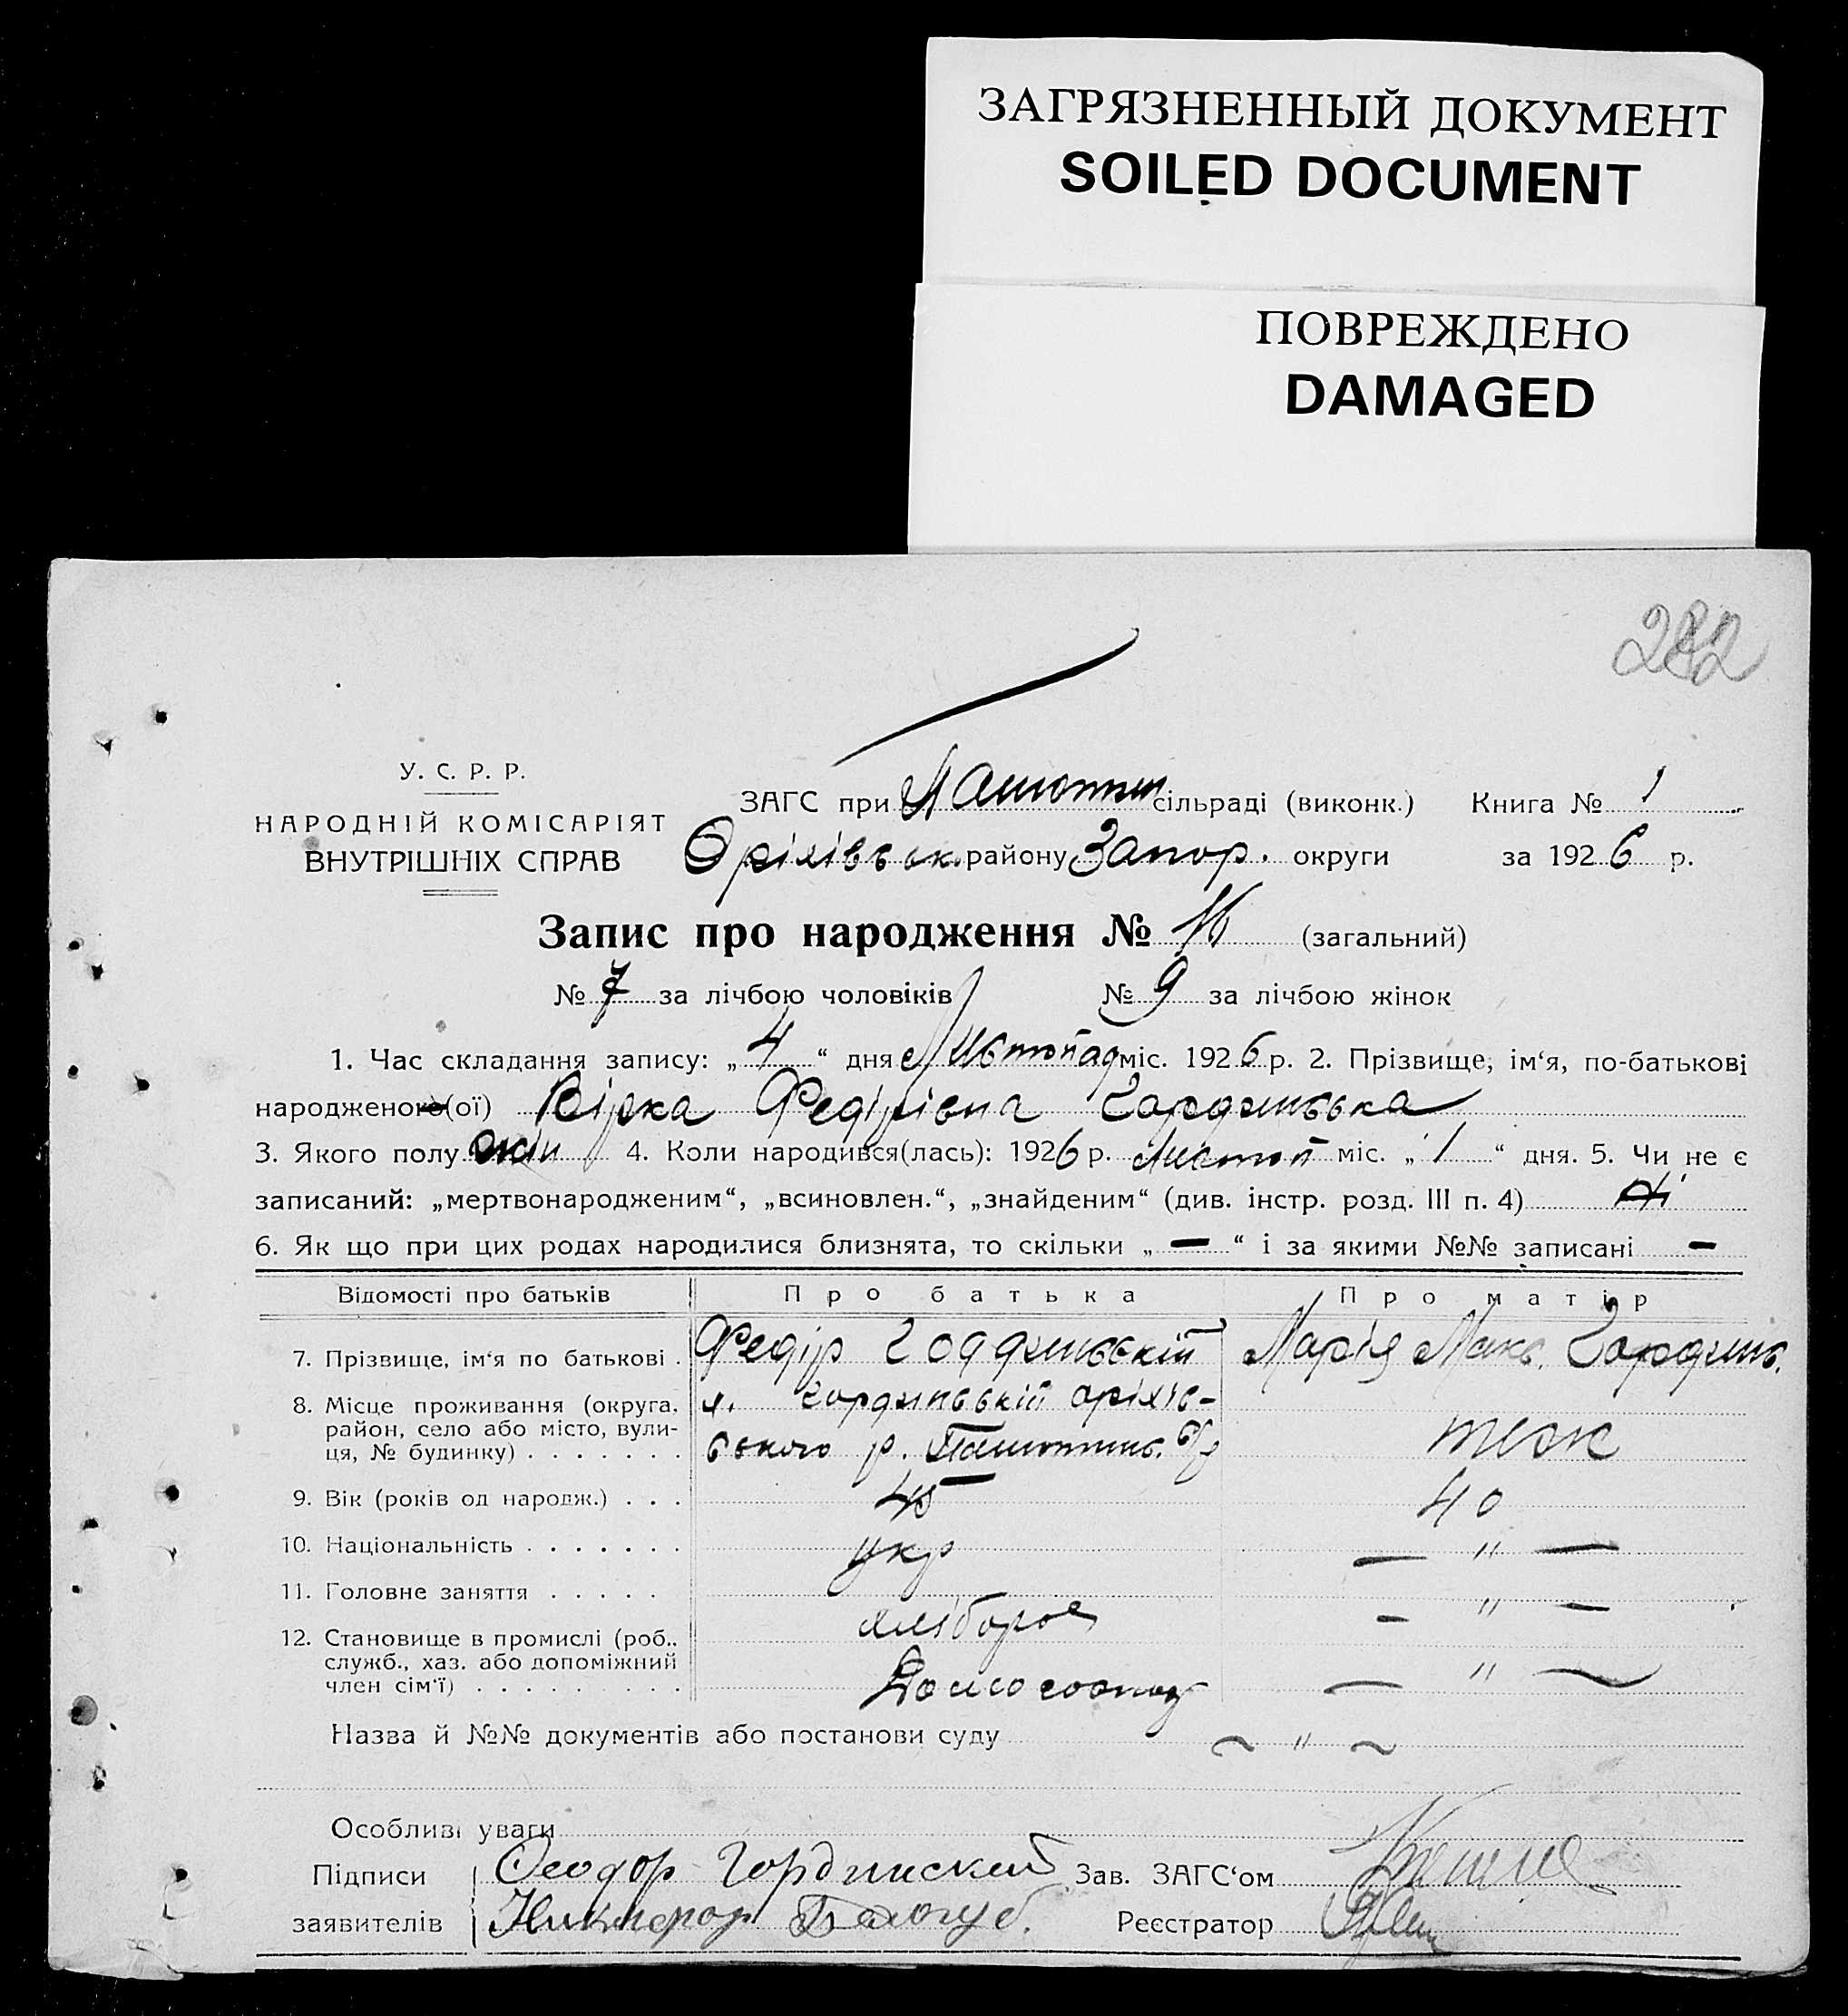 ЗАГРЯЗНЕННЫЙ ДОКУМЕНТ
SOILED DOCUMENT
ПОВРЕЖДЕНО
DAMAGED
282
У. С. Р. Р.
НАРОДНІЙ КОМІСАРІЯТ
ВНУТРІШНІХ СПРАВ
ЗАГС при сільраді (виконк.) Книга № 1
Оріхівськ. району Запор. округи за 1926 р.
Запис про народження № 16 (загальний)
№ 7 за лічбою чоловіків № 9 за лічбою жінок
1. Час складання запису: „ 4 “ дня Листопад міс. 1926 р. 2. Прізвище, ім‘я, по-батькові
народженого(ої) Вірка Федірівна Гординська
3. Якого полу жін 4. Коли народився(лась): 1926 р. Листоп міс. „ 1 “ дня. 5. Чи не є
записаний: „мертвонародженим“, „всиновлен.“, „знайденим“ (див. інстр. розд. III п. 4) Ні
6. Як що при цих родах народилися близнята, то скільки „ — “ і за якими №№ записані —
Відомості про батьків Про батька Про матір
7. Прізвище, ім‘я по батькові . Федір Гординській Марія Макс. Гординс.
8. Місце проживання (округа, район, село або місто, вулиця, № будинку) . . . . . . . Гординській оріхів-
ського р. теж
9. Вік (років од народж.) . . . 45 40
10. Національність . . . . . . . укр — " —
11. Головне заняття . . . . . хлібороб — " —
12. Становище в промислі (роб.. служб., хаз. або допоміжний член сім‘ї) . . . . . . . . . Домогоспод — " —
Назва й №№ документів або постанови суду ~ " ~
Особливі уваги
Підписи Феодор Гординский Зав. ЗАГС‘ом
заявителів Никифор Белогуб. Реєстратор